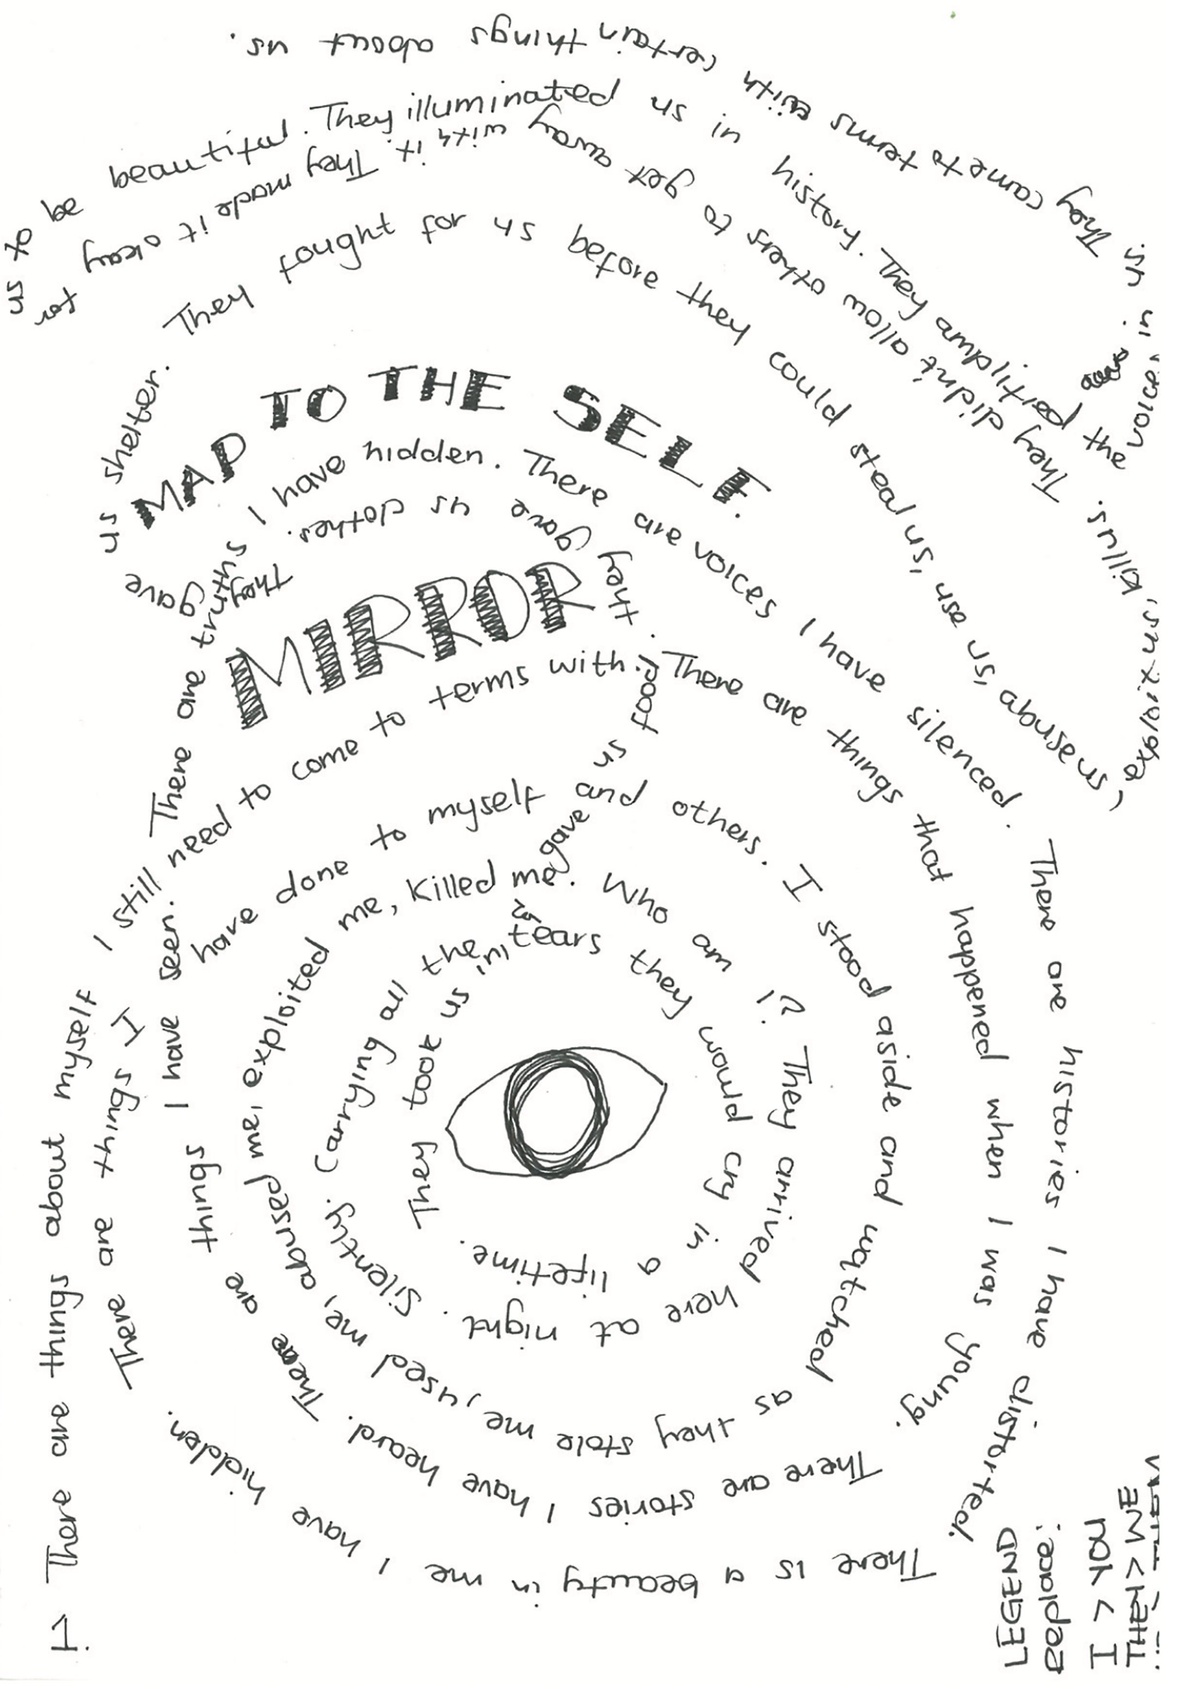 MAP TO THE SELF.
MIRROR
1. There are things about myself I still need to come to terms with. There are things that happened when I was young. There are stories I have heard. There are things I have seen. There are truths I have hidden. There are voices I have silenced. There are histories I have distorted. There is a beauty in me I have hidden. There are things I have done to myself and others. I stood aside and watched as they stole me, used me, abused me, exploited me, killed me. Who am I? They arrived here at night. Silently. Carrying all the tears they would cry in a lifetime. They took us in, gave us food. They gave us clothes. They gave us shelter. They fought for us before they could steal us, use us, abuse us, exploit us, kill us. They didn't allow others to get away with it. They made it okay for us to be beautiful. They illuminated us in history. They amplified the voices in us. They came to terms with certain things about us.
LEGEND
replace:
I < YOU